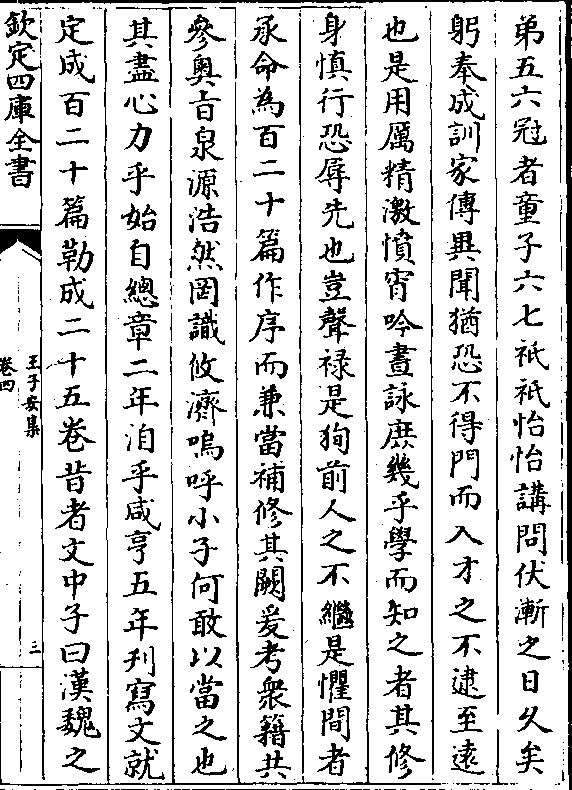 弟五六冠者童子六七祇祇怡怡講問伏漸之日久矣
躬奉成訓家傳異聞猶恐不得門而入才之不逮至遠
也是用厲精激憤宵吟晝詠庶幾乎學而知之者其修
身慎行恐辱先也豈聲祿是狥前人之不繼是懼間者
承命為百二十篇作序而兼當補修其闕爰考衆籍共
參奥旨泉源浩然罔識攸濟嗚呼小子何敢以當之也
其盡心力乎始自總章二年洎乎咸亨五年刋寫文就
定成百二十篇勒成二十五卷昔者文中子曰漢魏之
欽定四庫全書
王子安集
卷四
三